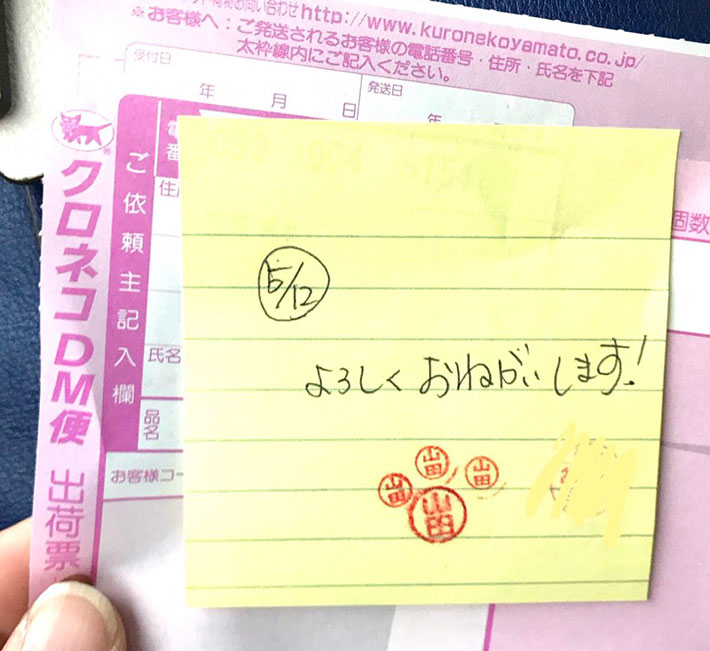 お問い合わせhttp://www.kuronekoyamato.co.jp/
※お客様へ：ご発送されるお客様の電話番号・住所・氏名を下記
太枠線内にご記入ください。
受付日
年 月 日
発送日
年
クロネコDM便 出荷票
ご依頼主記入欄
氏名
品名
お客様コー
個数
5/12
よろしくおねがいします!
山田
山田
山田
山田